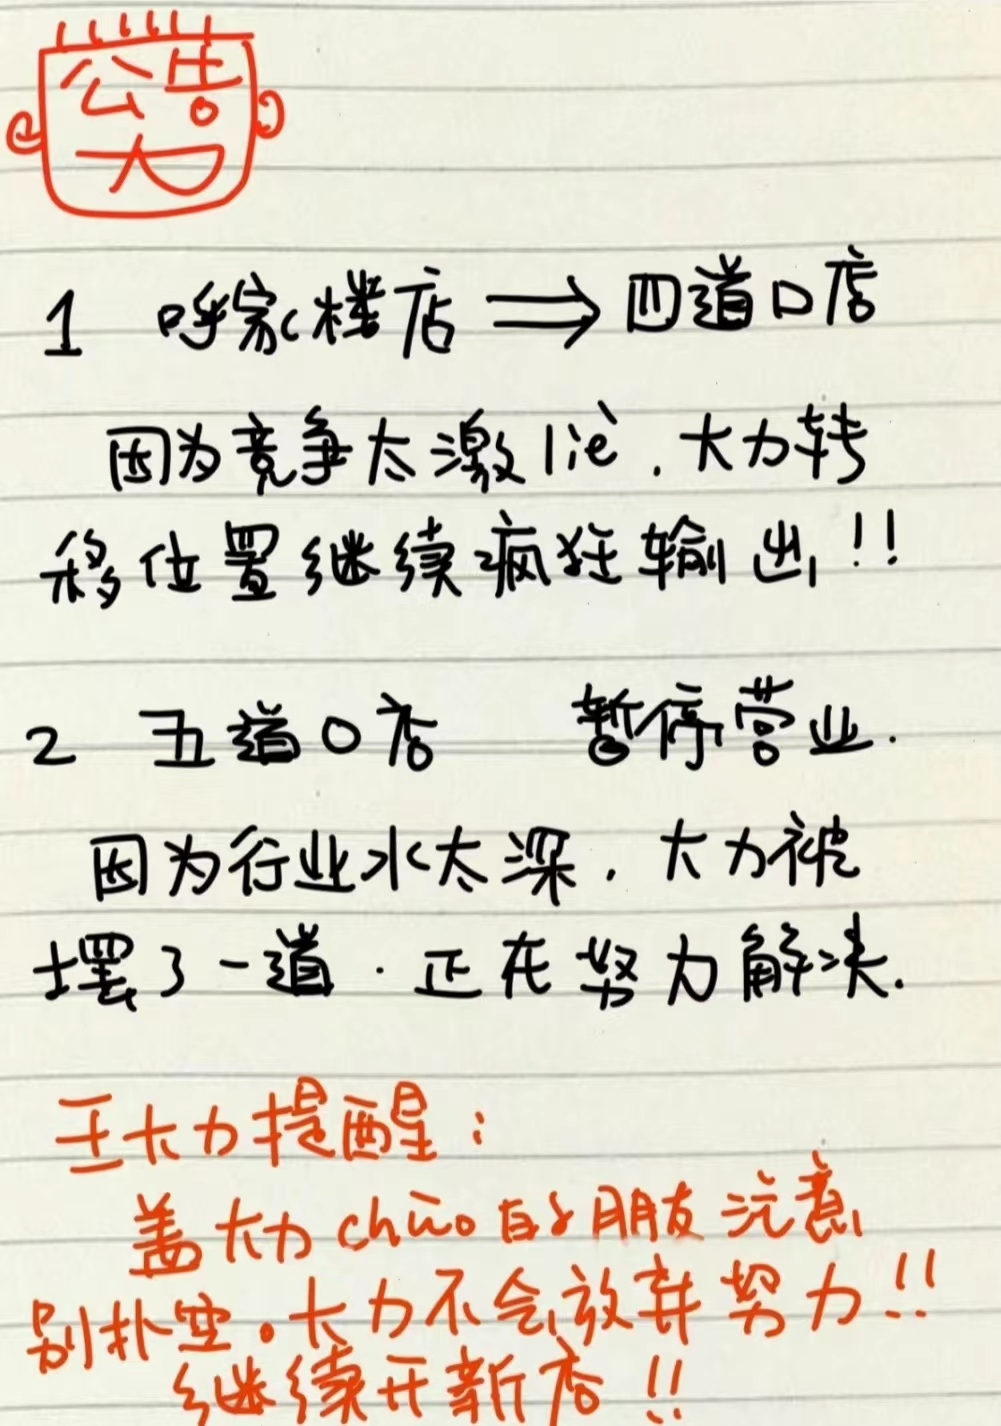 公告
1 呼家楼店 ⇒ 四道口店
因为竞争太激liè,大力转
移位置继续疯狂输出!!
2 五道口店 暂停营业.
因为行业水太深,大力被
摆了一道.正在努力解决.
王大力提醒:
盖大力chuō的朋友注意
别扑空。大力不会放弃努力!!
继续开新店!!